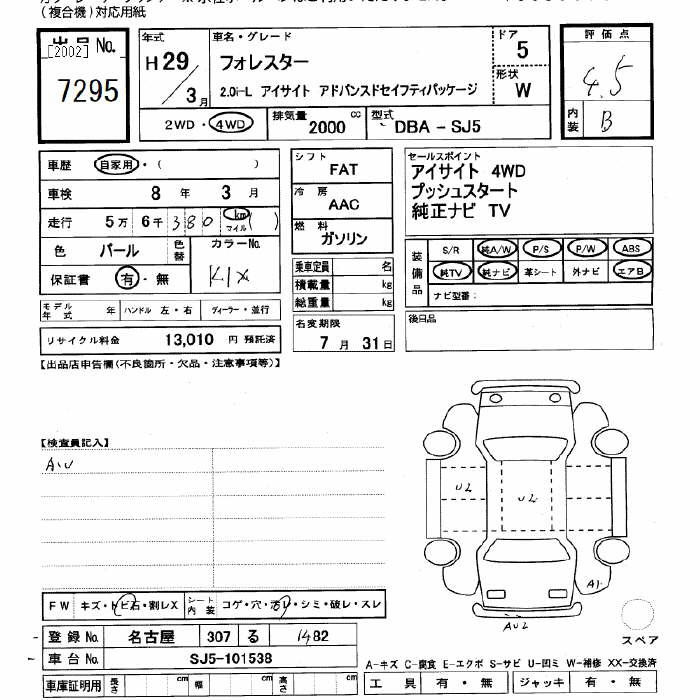 (複合機)対応用紙
出品 No.
[2002]
7295
年式
H 29 / 3 月
車名・グレード
フォレスター
2.0i-L アイサイト アドバンスドセイフティパッケージ
ドア
5
形状
W
2WD・4WD
排気量
2000 cc
型式
DBA - SJ5
評価点
4.5
内装
B
車歴 自家用・( )
車検 8 年 3 月
走行 5万 6千 380 km マイル ( )
色 パール 色替 カラーNo.
保証書 有・無 K1X
モデル年式 年 ハンドル 左・右 ディーラー・並行
リサイクル料金 13,010 円 預託済
シフト
FAT
冷房
AAC
燃料
ガソリン
乗車定員 名
積載量 kg
総重量 kg
名変期限
7 月 31 日
セールスポイント
アイサイト 4WD
プッシュスタート
純正ナビ TV
装備品
S/R 純A/W P/S P/W ABS
純TV 純ナビ 革シート 外ナビ エアB
ナビ型番:
後日品
【出品店申告欄(不良箇所・欠品・注意事項等)】
【検査員記入】
AU
U2
U2
A1
AU2
スペア
FW キズ・トビ石・割レX シート内装 コゲ・穴・汚レ・シミ・破レ・スレ
登録 No. 名古屋 307 る 1482
車台 No. SJ5-101538
車庫証明用 長さ cm 幅 cm 高さ cm
A-キズ C-腐食 E-エクボ S-サビ U-凹ミ W-補修 XX-交換済
工具 有・無 ジャッキ 有・無